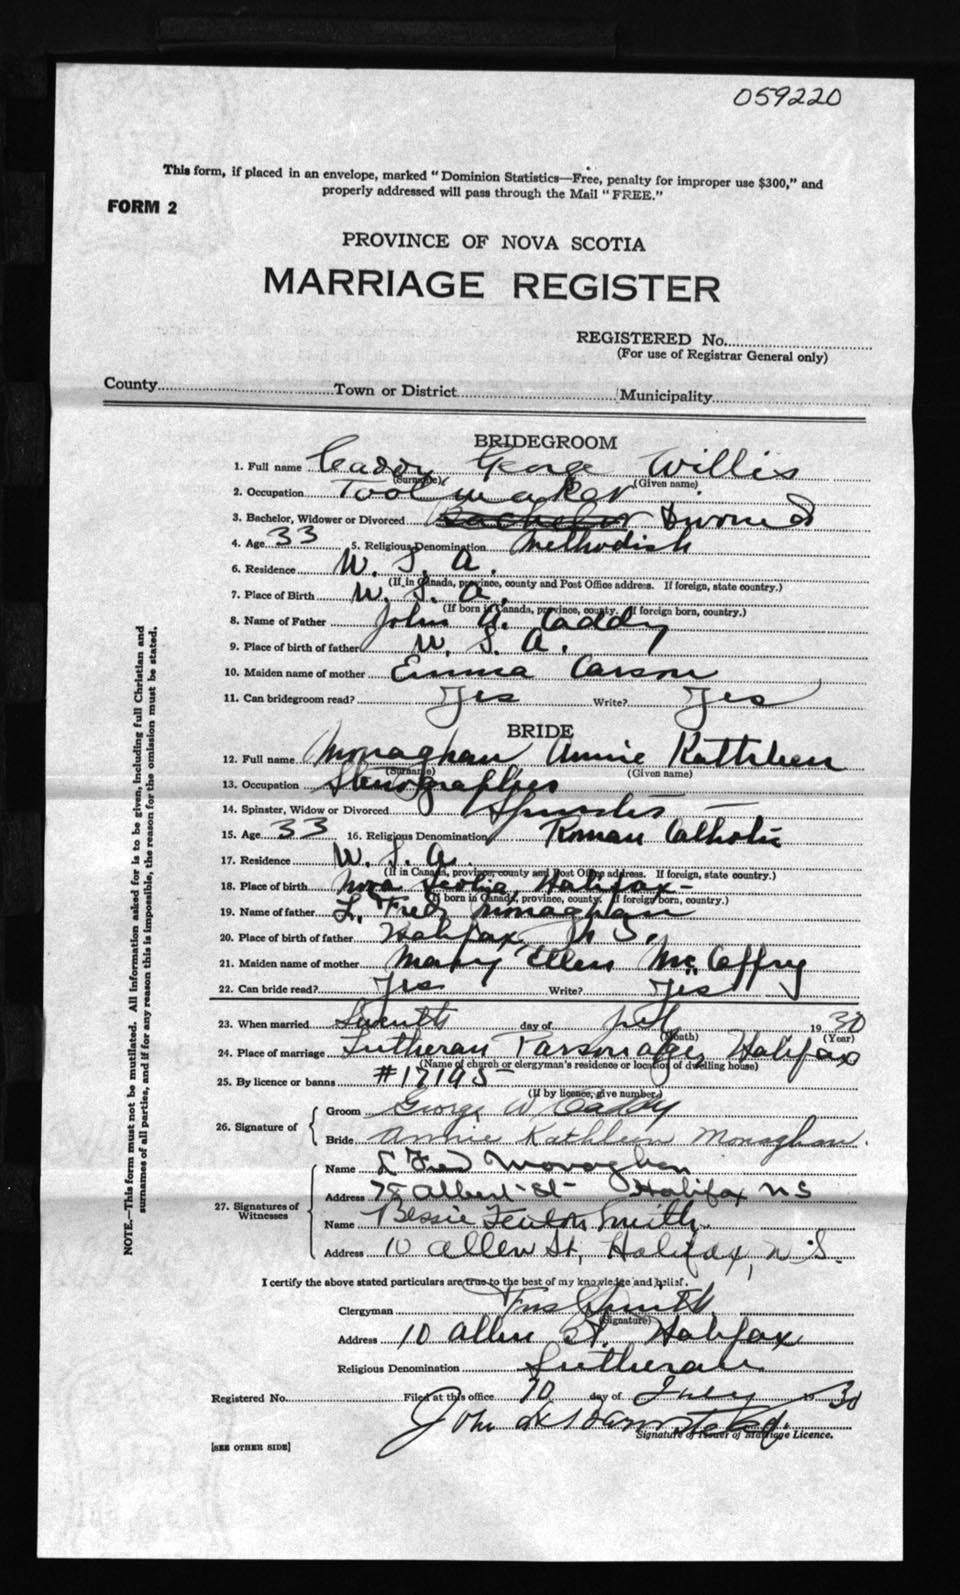 059220
This form, if placed in an envelope, marked "Dominion Statistics—Free, penalty for improper use $300," and
properly addressed will pass through the Mail "FREE."
FORM 2
PROVINCE OF NOVA SCOTIA
MARRIAGE REGISTER
REGISTERED No.
(For use of Registrar General only)
County Town or District Municipality
BRIDEGROOM
1. Full name Caddy George Willis
(Surname) (Given name)
2. Occupation Tool maker
3. Bachelor, Widower or Divorced Bachelor Divorced
4. Age 33 5. Religious Denomination Methodish
6. Residence U. S. A.
(If in Canada, province, county and Post Office address. If foreign, state country.)
7. Place of Birth U. S. A.
(If born in Canada, province, county. If foreign born, country.)
8. Name of Father John A. Caddy
9. Place of birth of father U. S. A.
10. Maiden name of mother Emma Carson
11. Can bridegroom read? Yes Write? Yes
BRIDE
12. Full name Monaghan Annie Kathleen
(Surname) (Given name)
13. Occupation Stenographer
14. Spinster, Widow or Divorced Spinster
15. Age 33 16. Religious Denomination Roman Catholic
17. Residence U. S. A.
(If in Canada, province, county and Post Office address. If foreign, state country.)
18. Place of birth Nova Scotia, Halifax -
(If born in Canada, province, county. If foreign born, country.)
19. Name of father L. Fred Monaghan
20. Place of birth of father Halifax, N S.
21. Maiden name of mother Mary Ellen McCaffry
22. Can bride read? Yes Write? Yes
23. When married Seventh day of July 1930
(Month) (Year)
24. Place of marriage Lutheran Parsonage, Halifax
(Name of church or clergyman's residence or location of dwelling house)
25. By licence or banns #17195
(If by licence, give number.)
26. Signature of Groom George W Caddy
Bride Annie Kathleen Monaghan.
27. Signatures of Witnesses
Name L Fred Monaghan
Address 75 Albert St Halifax NS
Name Bessie Smith
Address 10 Allen St, Halifax, N.S.
I certify the above stated particulars are true to the best of my knowledge and belief.
Clergyman Smith
(Signature)
Address 10 Allen St. Halifax
Religious Denomination Lutheran
Registered No. Filed at this office 10 day of July 1930
John
Signature of Issuer of Marriage Licence.
[SEE OTHER SIDE]
NOTE.—This form must not be mutilated. All information asked for is to be given, including full Christian and
surnames of all parties, and if for any reason this is impossible, the reason for the omission must be stated.